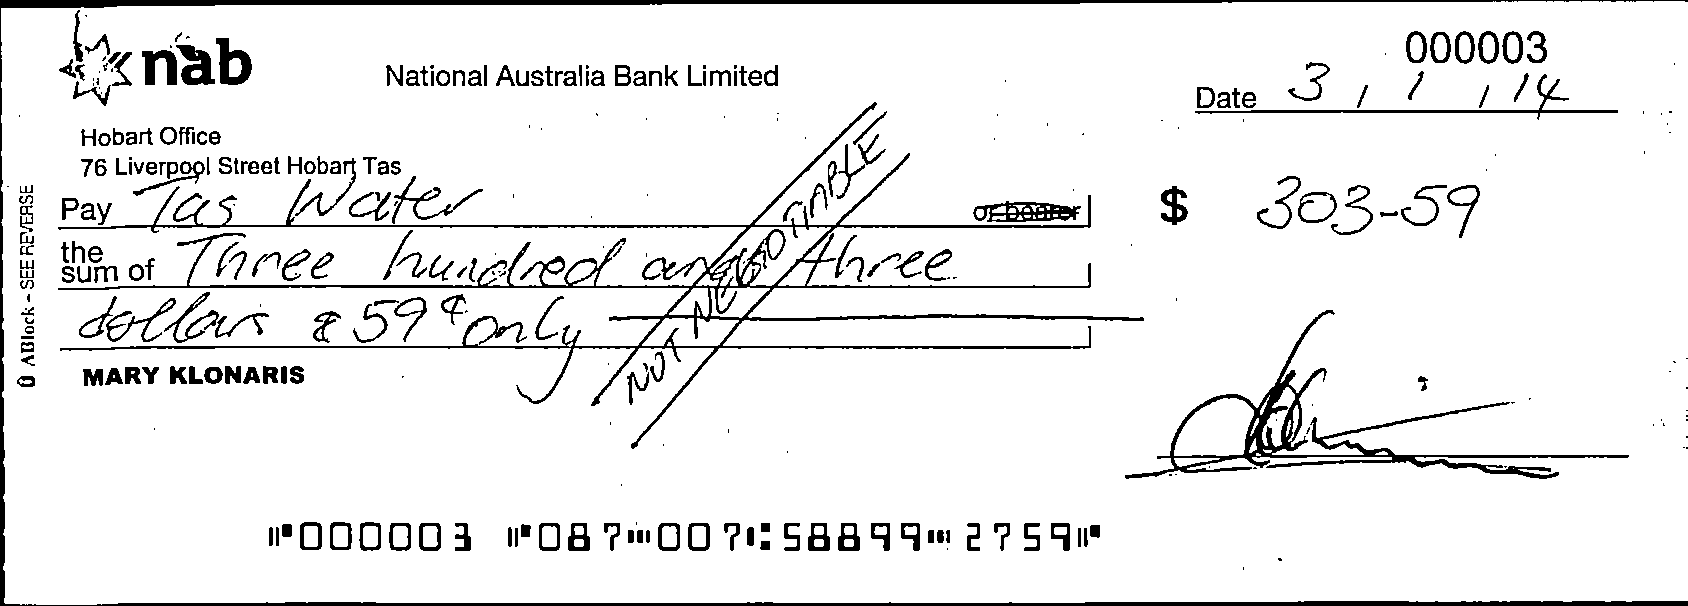 nab
National Australia Bank Limited
000003
Date 3 / 1 / 14
Hobart Office
76 Liverpool Street Hobart Tas
Pay Tas Water or bearer
$ 303-59
the sum of Three hundred and three
dollars & 59¢ only
NOT NEGOTIABLE
MARY KLONARIS
ABlock - SEE REVERSE
⑈000003 ⑈087⑉007⑆58899⑉2759⑈